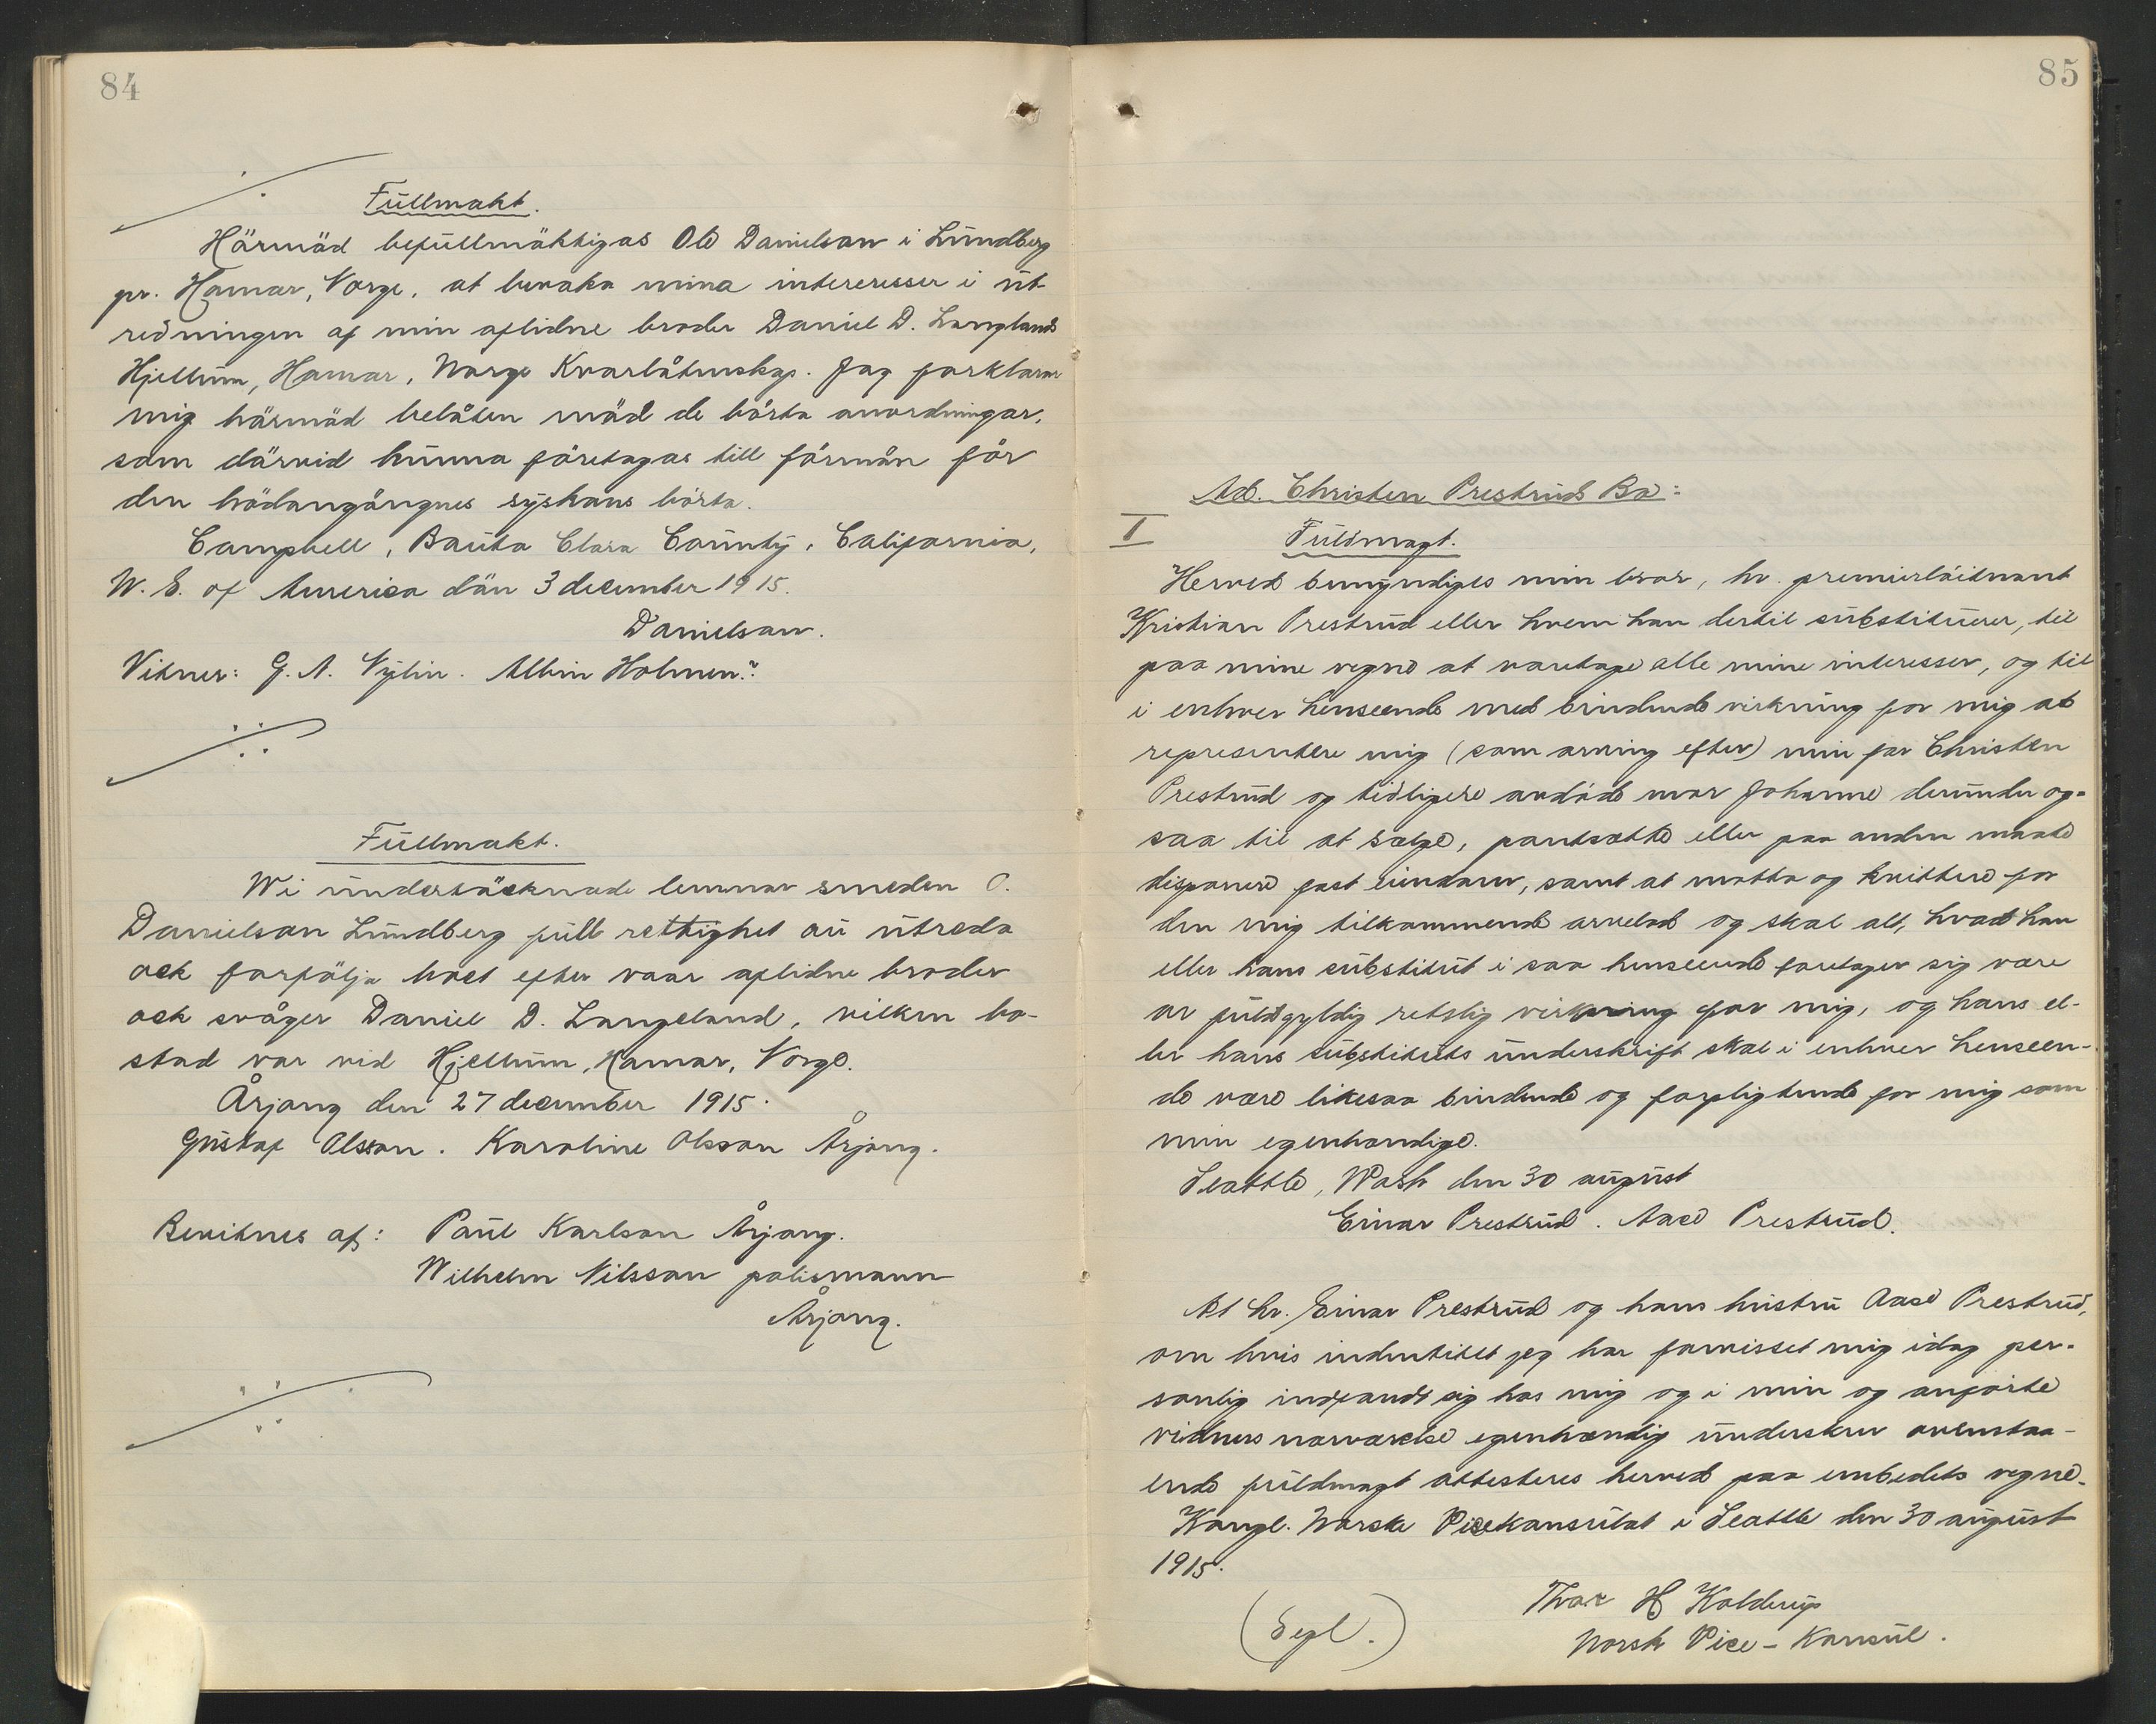 84
Fullmakt.
Härmäd befullmäktigas Ole Danielson i Lundberg
pr. Hamar, Norge, at bevaka mina intereresser i ut-
redningen af min aflidne broder Daniel D. Langlands
Hjellum, Hamar, Norge Kvarlåtenskap. Jag forklarar
mig härmäd belåten mäd de bästa anordningar,
som därvid kunna företagas till förmån för
den hädangångnes syskons bästa.
Campbell, Santa Clara County, California,
U. S. of America dän 3 december 1915.
Danielson.
Vitner: G. A. Nylin. Albin Holmen."
Fullmakt.
Wi undertäcknade lemnar smeden O.
Danielson Lundberg full rettighet au utreda
ock forfölja boet efter vaar aflidne broder
ock svåger Daniel D. Langeland, vilken bo-
stad var vid Hjellum, Hamar, Norge.
Årjang den 27 december 1915.
Gustaf Olsson. Karoline Olsson Årjang.
Bevitnes af: Paul Karlson Årjang.
Wilhelm Nilsson polismann
Årjang.
85
Ad. Christen Prestruds Bo:
I
Fuldmagt.
Herved bemyndiges min bror, hr. premierløitnant
Kristian Prestrud eller hvem han dertil substituerer, til
paa mine vegne at varetage alle mine interesser, og til
i enhver henseende med bindende virkning for mig at
representere mig (som arving efter) min far Christen
Prestrud og tidligere avdøde mor Johanne derunder og-
saa til at sælge, pantsætte eller paa anden maate
disponere fast eiendom, samt at motta og kvittere for
den mig tilkommende arvelod og skal alt, hvad han
eller hans substitut i saa henseende foretager sig være
av fuldgyldig retslig virkning for mig, og hans el-
ler hans substituts underskrift skal i enhver henseen-
de være likesaa bindende og forpligtende for mig som
min egenhændige.
Seattle, Wash den 30 august
Einar Prestrud. Aase Prestrud.
At hr. Einar Prestrud og hans hustru Aase Prestrud,
om hvis indentitet jeg har forvisset mig idag per-
sonlig indfandt sig hos mig og i min og anførte
vidners nærværelse egenhændig underskrev ovenstaa-
ende fuldmagt attesteres herved paa embedets vegne.
Kongl. Norske Vicekonsulat i Seattle den 30 august
1915.
(Segl.)
Thor H Kolderup
Norsk Vice-Konsul.